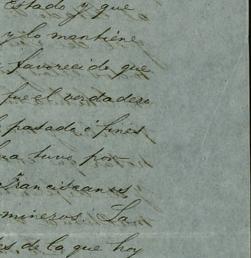 Estado y que
y lo mantiene
favorecido que
fue el verdadero
pasado é fines
tuvo por
Franciscanos
mineros. La
de la que hoy